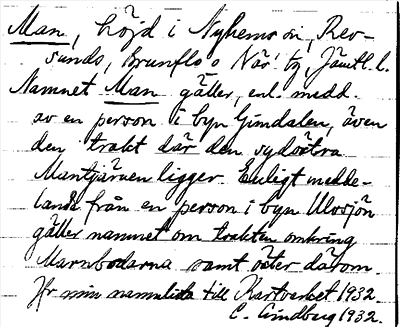 Man, höjd i Nyhems sn, Rev-
sunds, Brunflo o Näs' tg, Jämtl. l.
Namnet Man gäller, enl. medd.
av en person i byn Gimdalen, även
den trakt där den sydöstra
Mantjärnen ligger. Enligt medde-
lande från en person i byn Ulvsjön
gäller namnet om trakten omkring
Marnbodarna samt öster därom.
Ur min namnlista till Kartverket 1932
C. Lindberg 1932.